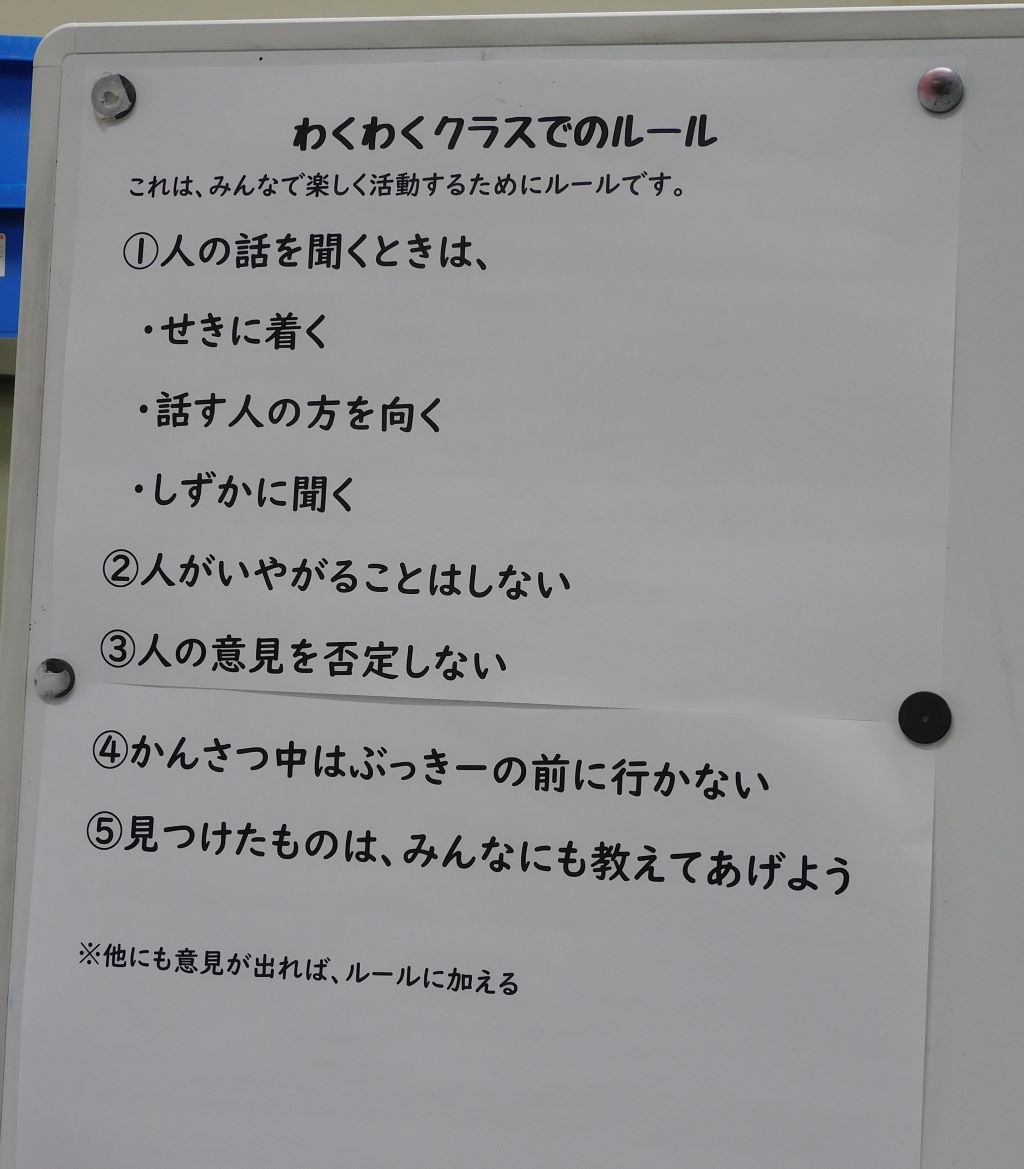 わくわくクラスでのルール
これは、みんなで楽しく活動するためにルールです。
①人の話を聞くときは、
・せきに着く
・話す人の方を向く
・しずかに聞く
②人がいやがることはしない
③人の意見を否定しない
④かんさつ中はぶっきーの前に行かない
⑤見つけたものは、みんなにも教えてあげよう
※他にも意見が出れば、ルールに加える